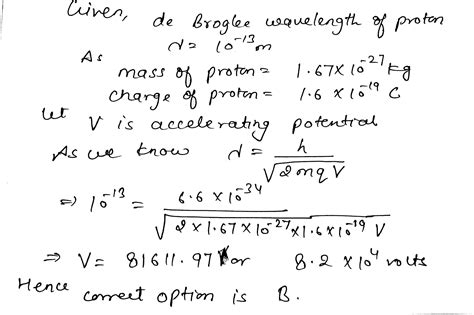 Given, de Broglee wavelength of proton
λ = 10^-13 m
As
mass of proton = 1.67 x 10^-27 kg
charge of proton = 1.6 x 10^-19 C
let V is accelerating potential
As we know λ = h / √(2mqV)
⇒ 10^-13 = 6.6 x 10^-34 / √(2 x 1.67 x 10^-27 x 1.6 x 10^-19 V)
⇒ V = 81611.97 V or 8.2 x 10^4 volts
Hence correct option is B.